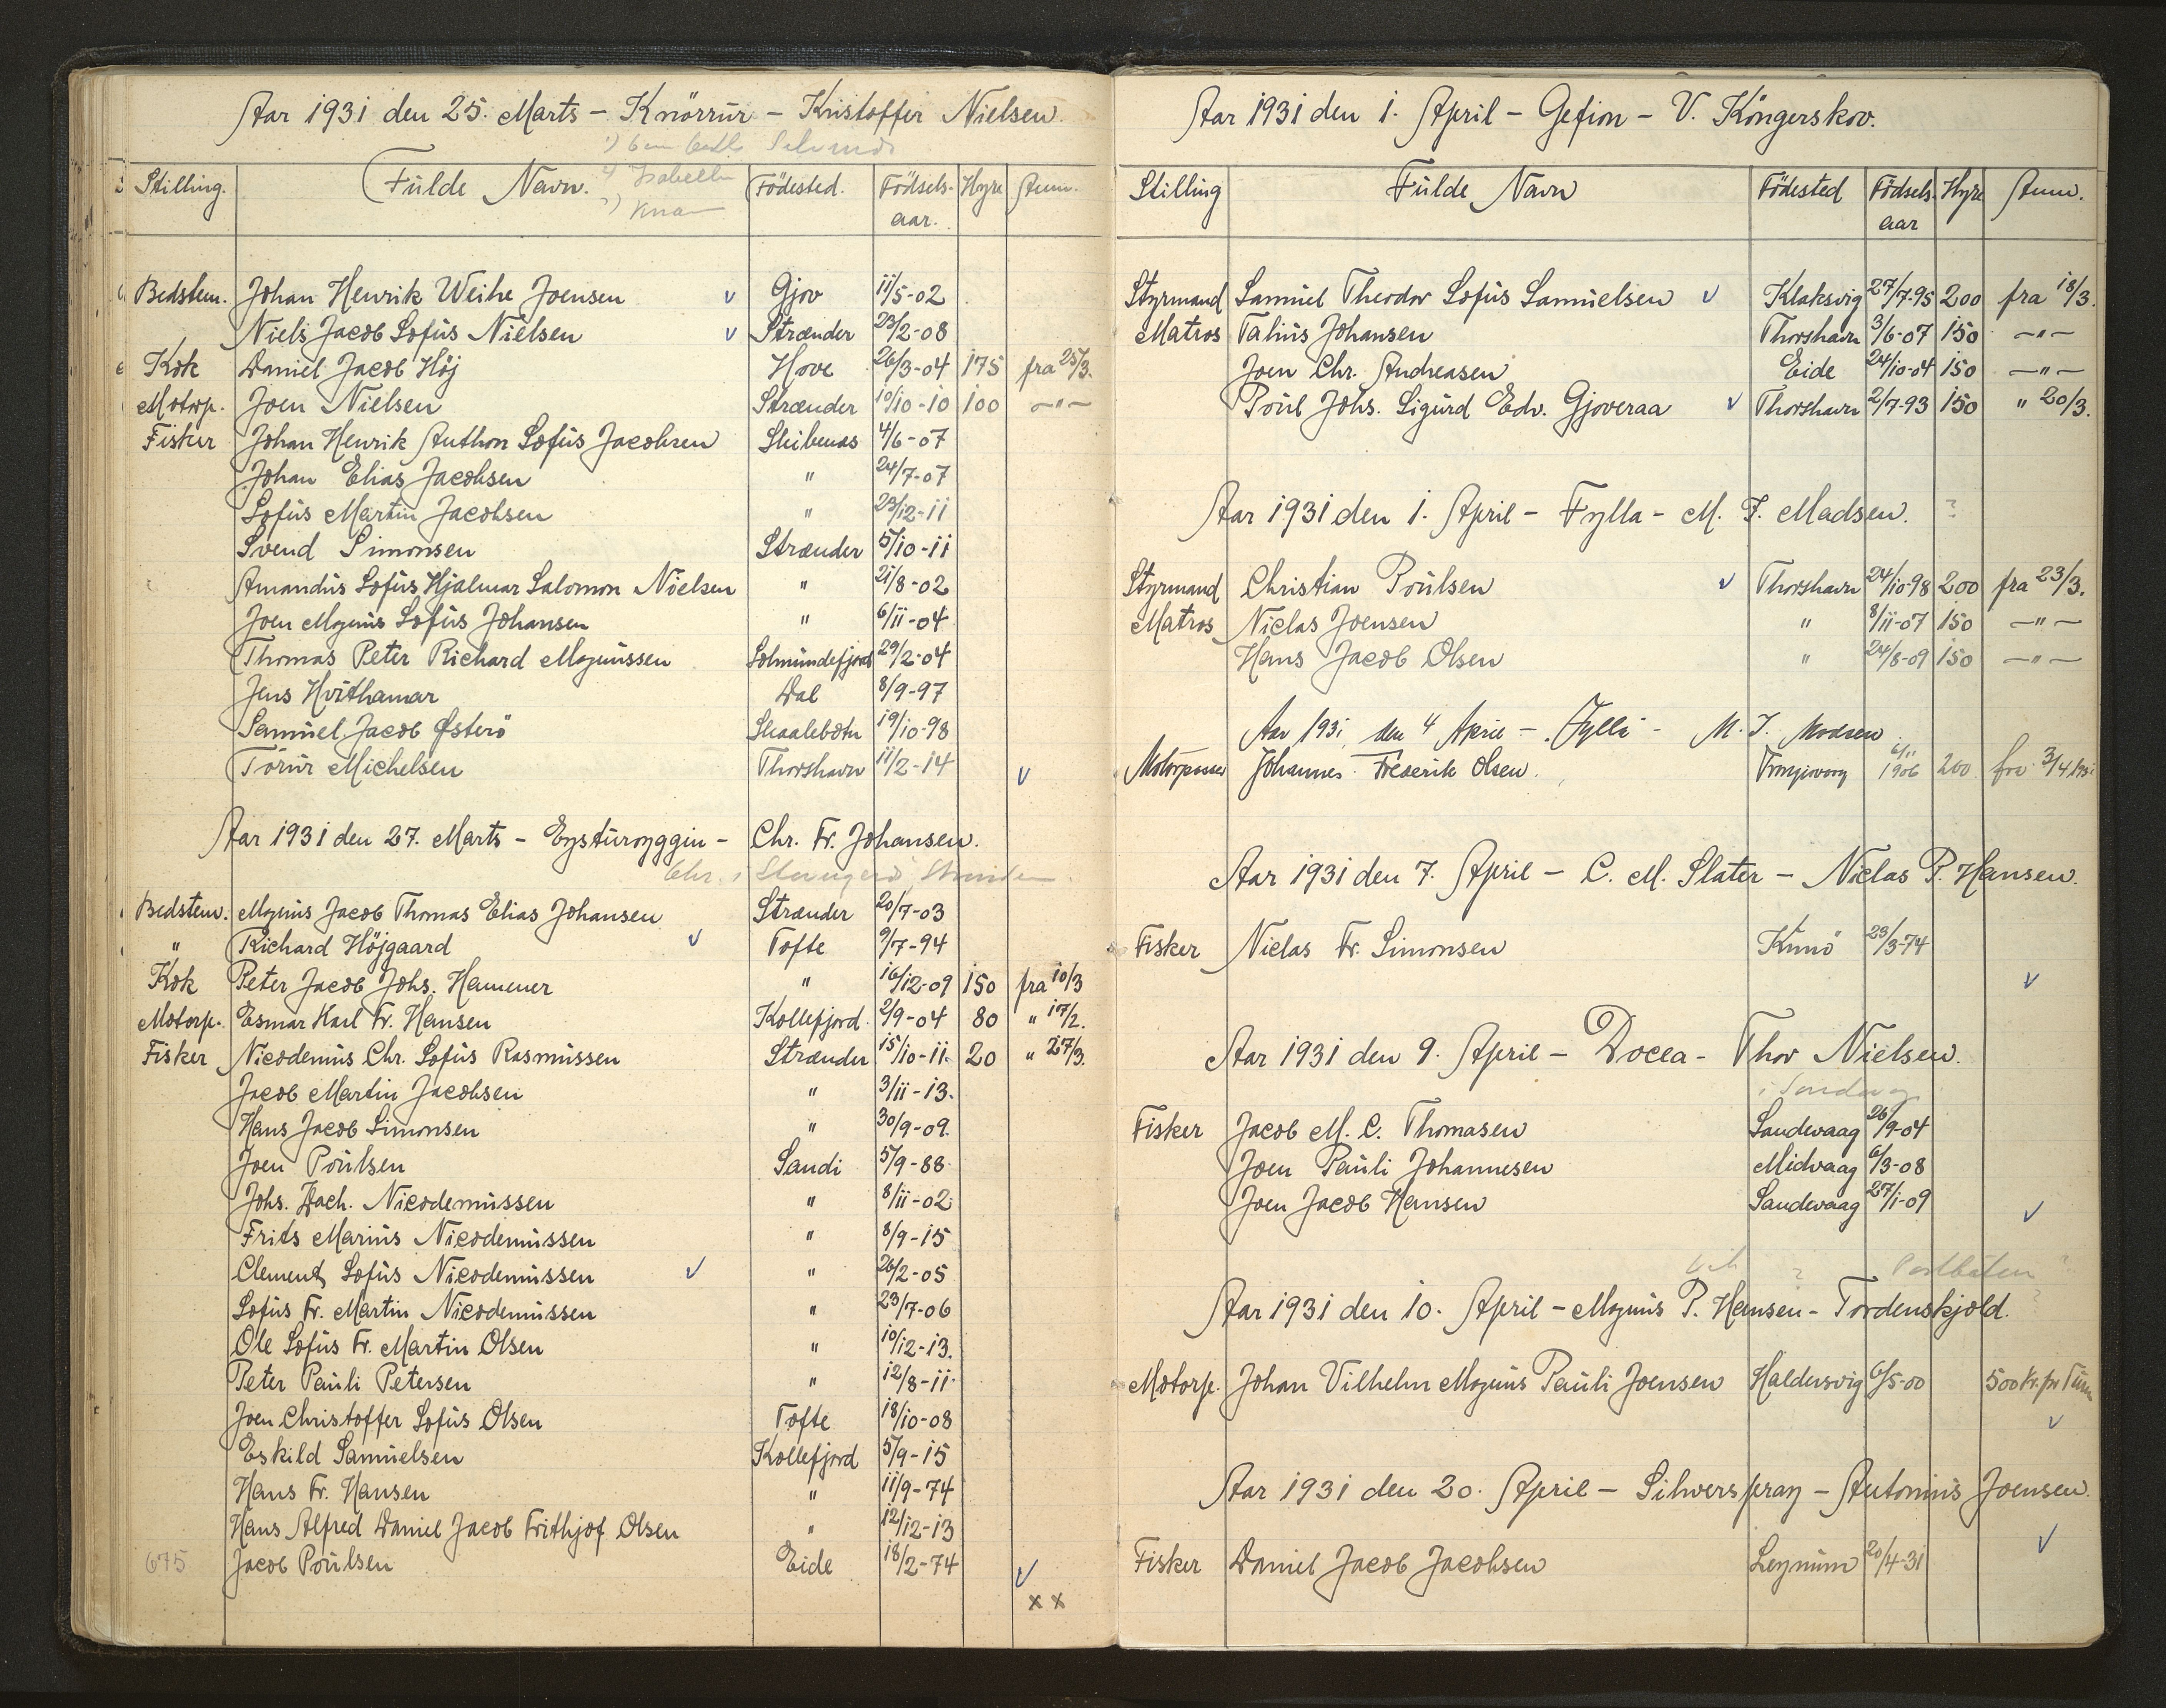 Aar 1931 den 25. Marts – Knörrur – Kristoffer Nielsen.
Isabella
Stilling. Fulde Navn. Födested. Födsels-aar. Hyre Anm.
Bedstem. Johan Henrik Weihe Joensen v Gjov 11/5-02
Niels Jacob Sofus Nielsen v Strænder 23/2-08
Kok Daniel Jacob Höj Hove 26/3-04 175 fra 25/3.
Motorp. Joen Nielsen Strænder 10/10-10 100 –"–
Fisker Johan Henrik Anthon Sofus Jacobsen 4/6-07
Johan Elias Jacobsen " 24/7-07
Sofus Martin Jacobsen " 23/12-11
Svend Simonsen Strænder 5/10-11
Amandus Sofus Hjalmar Salomon Nielsen " 21/8-02
Joen Magnus Sofus Johansen " 6/11-04
Thomas Peter Richard Magnussen Solmundefjord 29/2-04
Jens Hvithamar Dal 8/9-97
Samuel Jacob Østerö Skaalebotn 19/10-98
Torur Michelsen Thorshavn 11/2-14 v
Aar 1931 den 27. Marts – Eysturoyggin – Chr. Fr. Johansen.
Chr. i
Bedstem. Magnus Jacob Thomas Elias Johansen Strænder 20/7-03
" Richard Höjgaard v Tofte 9/7-94
Kok Peter Jacob Johs. Hammer " 16/12-09 150 fra 10/3
Motorp. Esmar Karl Fr. Hansen Kollefjord. 2/9-04 80 " 17/2.
Fisker Nicodemus Chr. Sofus Rasmussen Strænder 15/10-11. 20 " 27/3.
Jacob Martin Jacobsen " 3/11-13.
Hans Jacob Simonsen " 30/9-09.
Joen Poulsen Sandi 5/9-88
Johs. Zach. Nicodemussen " 8/11-02
Frits Marius Nicodemussen " 8/9-15
Clement Sofus Nicodemussen v " 26/2-05
Sofus Fr. Martin Nicodemussen " 23/7-06
Ole Sofus Fr. Martin Olsen " 10/12-13.
Peter Pauli Petersen " 12/8-11.
Joen Christoffer Sofus Olsen Tofte 18/10-08
Eskild Samuelsen Kollefjord 5/9-15
Hans Fr. Hansen " 11/9-74
Hans Alfred Daniel Jacob Frithjof Olsen " 12/12-13
675 Jacob Poulsen Eide 18/2-74 v
x x
Aar 1931 den 1. April – Gefion – V. Köngerskov.
Stilling Fulde Navn Födested Födsels-aar Hyre Anm.
Styrmand Samuel Theodor Sofus Samuelsen v Klaksvig 27/7-95 200 fra 18/3.
Matros Talius Johansen Thorshavn 3/6-07 150 –"–
Joen Chr. Andreasen Eide 24/10-04 150 –"–
Poul Johs. Sigurd Edv. Gjoveraa v Thorshavn 2/7-93 150 " 20/3.
Aar 1931 den 1. April – Fylla – M. J. Madsen. ?
Styrmand Christian Poulsen v Thorshavn 24/10-98 200 fra 23/3.
Matros Niclas Joensen " 8/11-07 150 –"–
Hans Jacob Olsen " 24/8-09 150 –"–
Aar 1931 den 4 April – Fylla – M. J. Madsen
Motorpasser Johannes Frederik Olsen. 6/11 1906 200 fra 3/4 1931
Aar 1931 den 7. April – C. M. Slater – Niclas P. Hansen.
Fisker Niclas Fr. Simonsen Kunö 23/3-74
v
Aar 1931 den 9. April – Docea – Thor Nielsen.
i Sandevaag
Fisker Jacob M. C. Thomasen Sandevaag 26/9-04
Joen Pauli Johannesen Midvaag 6/3-08
Joen Jacob Hansen Sandevaag 27/1-09 v
? Postbåten ?
Aar 1931 den 10. April – Magnus P. Hansen – Tordenskjold.
Motorp. Johan Vilhelm Magnus Pauli Joensen Haldersvig 6/5-00 500 Kr. pr Turn
v
Aar 1931 den 20. April – Silverspray – Antonius Joensen.
v
Fisker Daniel Jacob Jacobsen Leynum 20/4-31